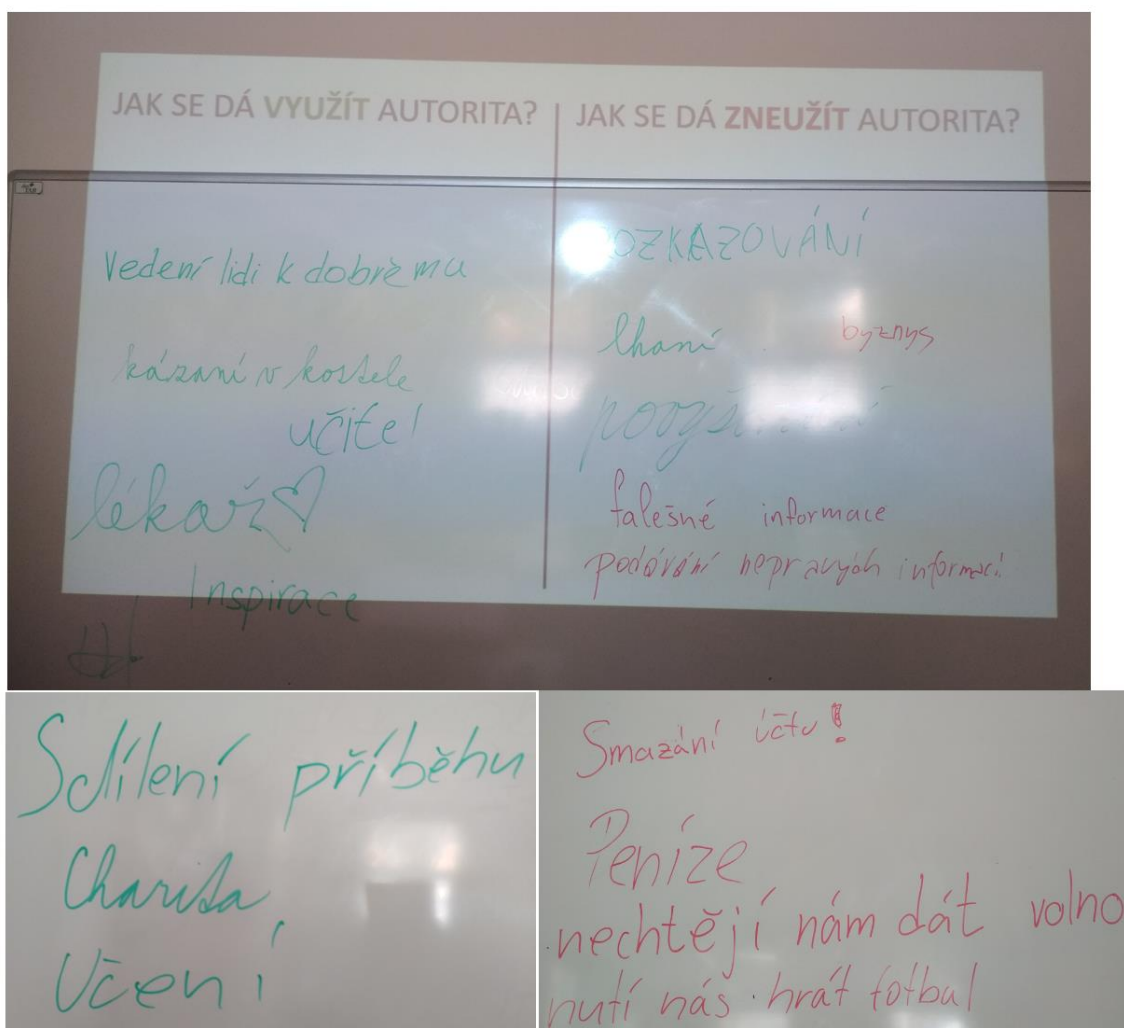 JAK SE DÁ VYUŽÍT AUTORITA?
Vedení lidi k dobrému
kázaní v kostele
učitel
lékař
Inspirace
JAK SE DÁ ZNEUŽÍT AUTORITA?
ROZKAZOVÁNÍ
lhaní
byznys
falešné informace
podávání nepravých informací
Sdílení příběhu
Charita
Učení
Smazání účtu!
Peníze
nechtějí nám dát volno
nutí nás hrát fotbal